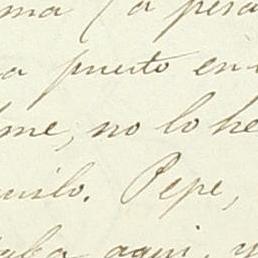 ma (a pesa
a puesto en
me, no lo he
uilo. Pepe,
aba aqui, y